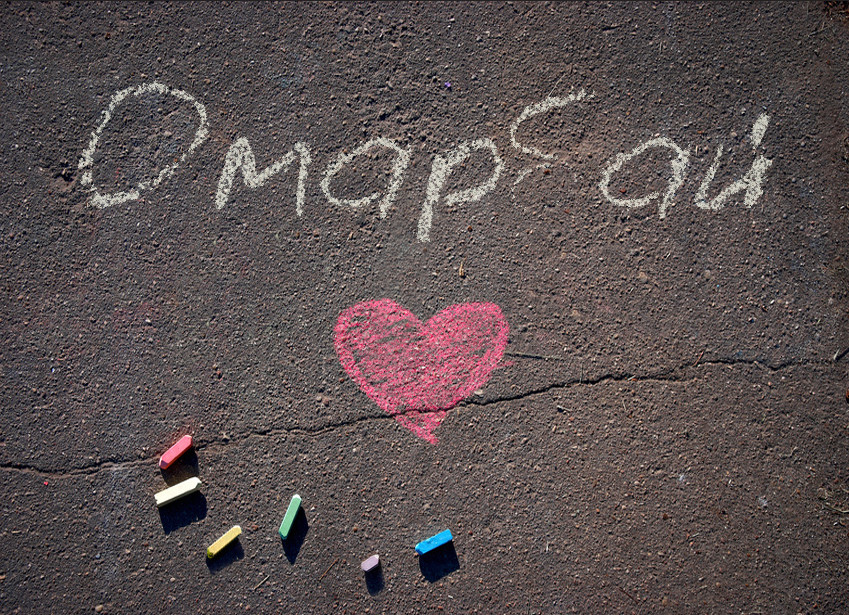 Омарбай